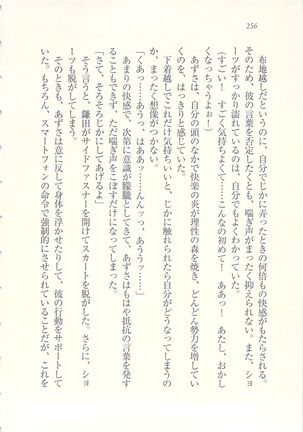 256
布地越しだというのに、自分でじかに弄ったときの何倍もの快感がもたらされる。
そのため、彼の言葉を否定したくとも、喘ぎ声がまったく抑えられない。また、ショ
ーツがすっかり濡れているのは、自分でもよくわかっていた。
(すごい！　すごく気持ちよくて……こんなの初めて！　ああっ！　あたし、おかし
くなっちゃうよぉ！)
あずさは、自分の頭のなかで快楽の炎が理性の森を焼き、どんどん勢力を増してい
くのを、はっきりと感じていた。
下着越しでこれだけ気持ちいいと、じかに触れられたら自分がどうなってしまうの
か、まったく想像がつかない。
「くあっ……あうっ、はああっ……んんっっ、あううっ……」
あまりの快感で、次第に意識が朦朧としてきて、あずさはもはや抵抗の言葉を発す
ることもできず、ただ喘ぎ声をこぼすだけになってしまった。
「さて、そろそろじかにしてあげるよ」
そう言うと、鎌田がサイドファスナーを開けてスカートを脱がした。さらに、ショ
ーツも脱がしてしまう。
そのときも、あずさは意に反して身体を浮かせたりして、彼の行動をサポートして
いた。もちろん、スマートフォンの命令で強制的にさせられていることだが、これを